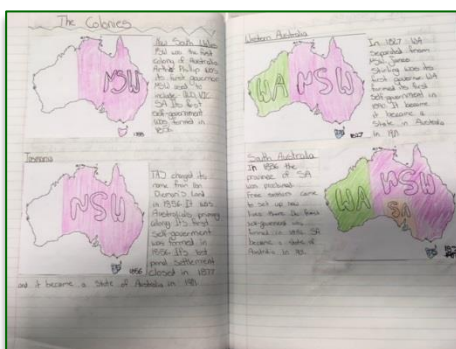 The Colonies
New South Wales
NSW was the first
colony of Australia
Arthur Phillip was
its first governor
NSW used to
include QLD, VIC
SA Its first
self-government
was formed in
1856
NSW
Tasmania
TAS changed its
name from Van
Diemen's Land
in 1856. It was
Australia's
Its first
self-government
was formed in
1856 It's last
penal settlement
closed in 1877
and it became a state of Australia in 1901
NSW
1856
Western Australia
In 1827 WA
separated from
NSW James
Stirling was its
first governor WA
formed its first
self government in
1890 It became
it became a
state in Australia
in 1901
WA NSW
1827
South Australia
In 1836 the
province of SA
was proclaimed
Free settlers came
to set up new
lives there. Its first
self-government was
formed in
became a state of
Australia in 1901
WA NSW
SA